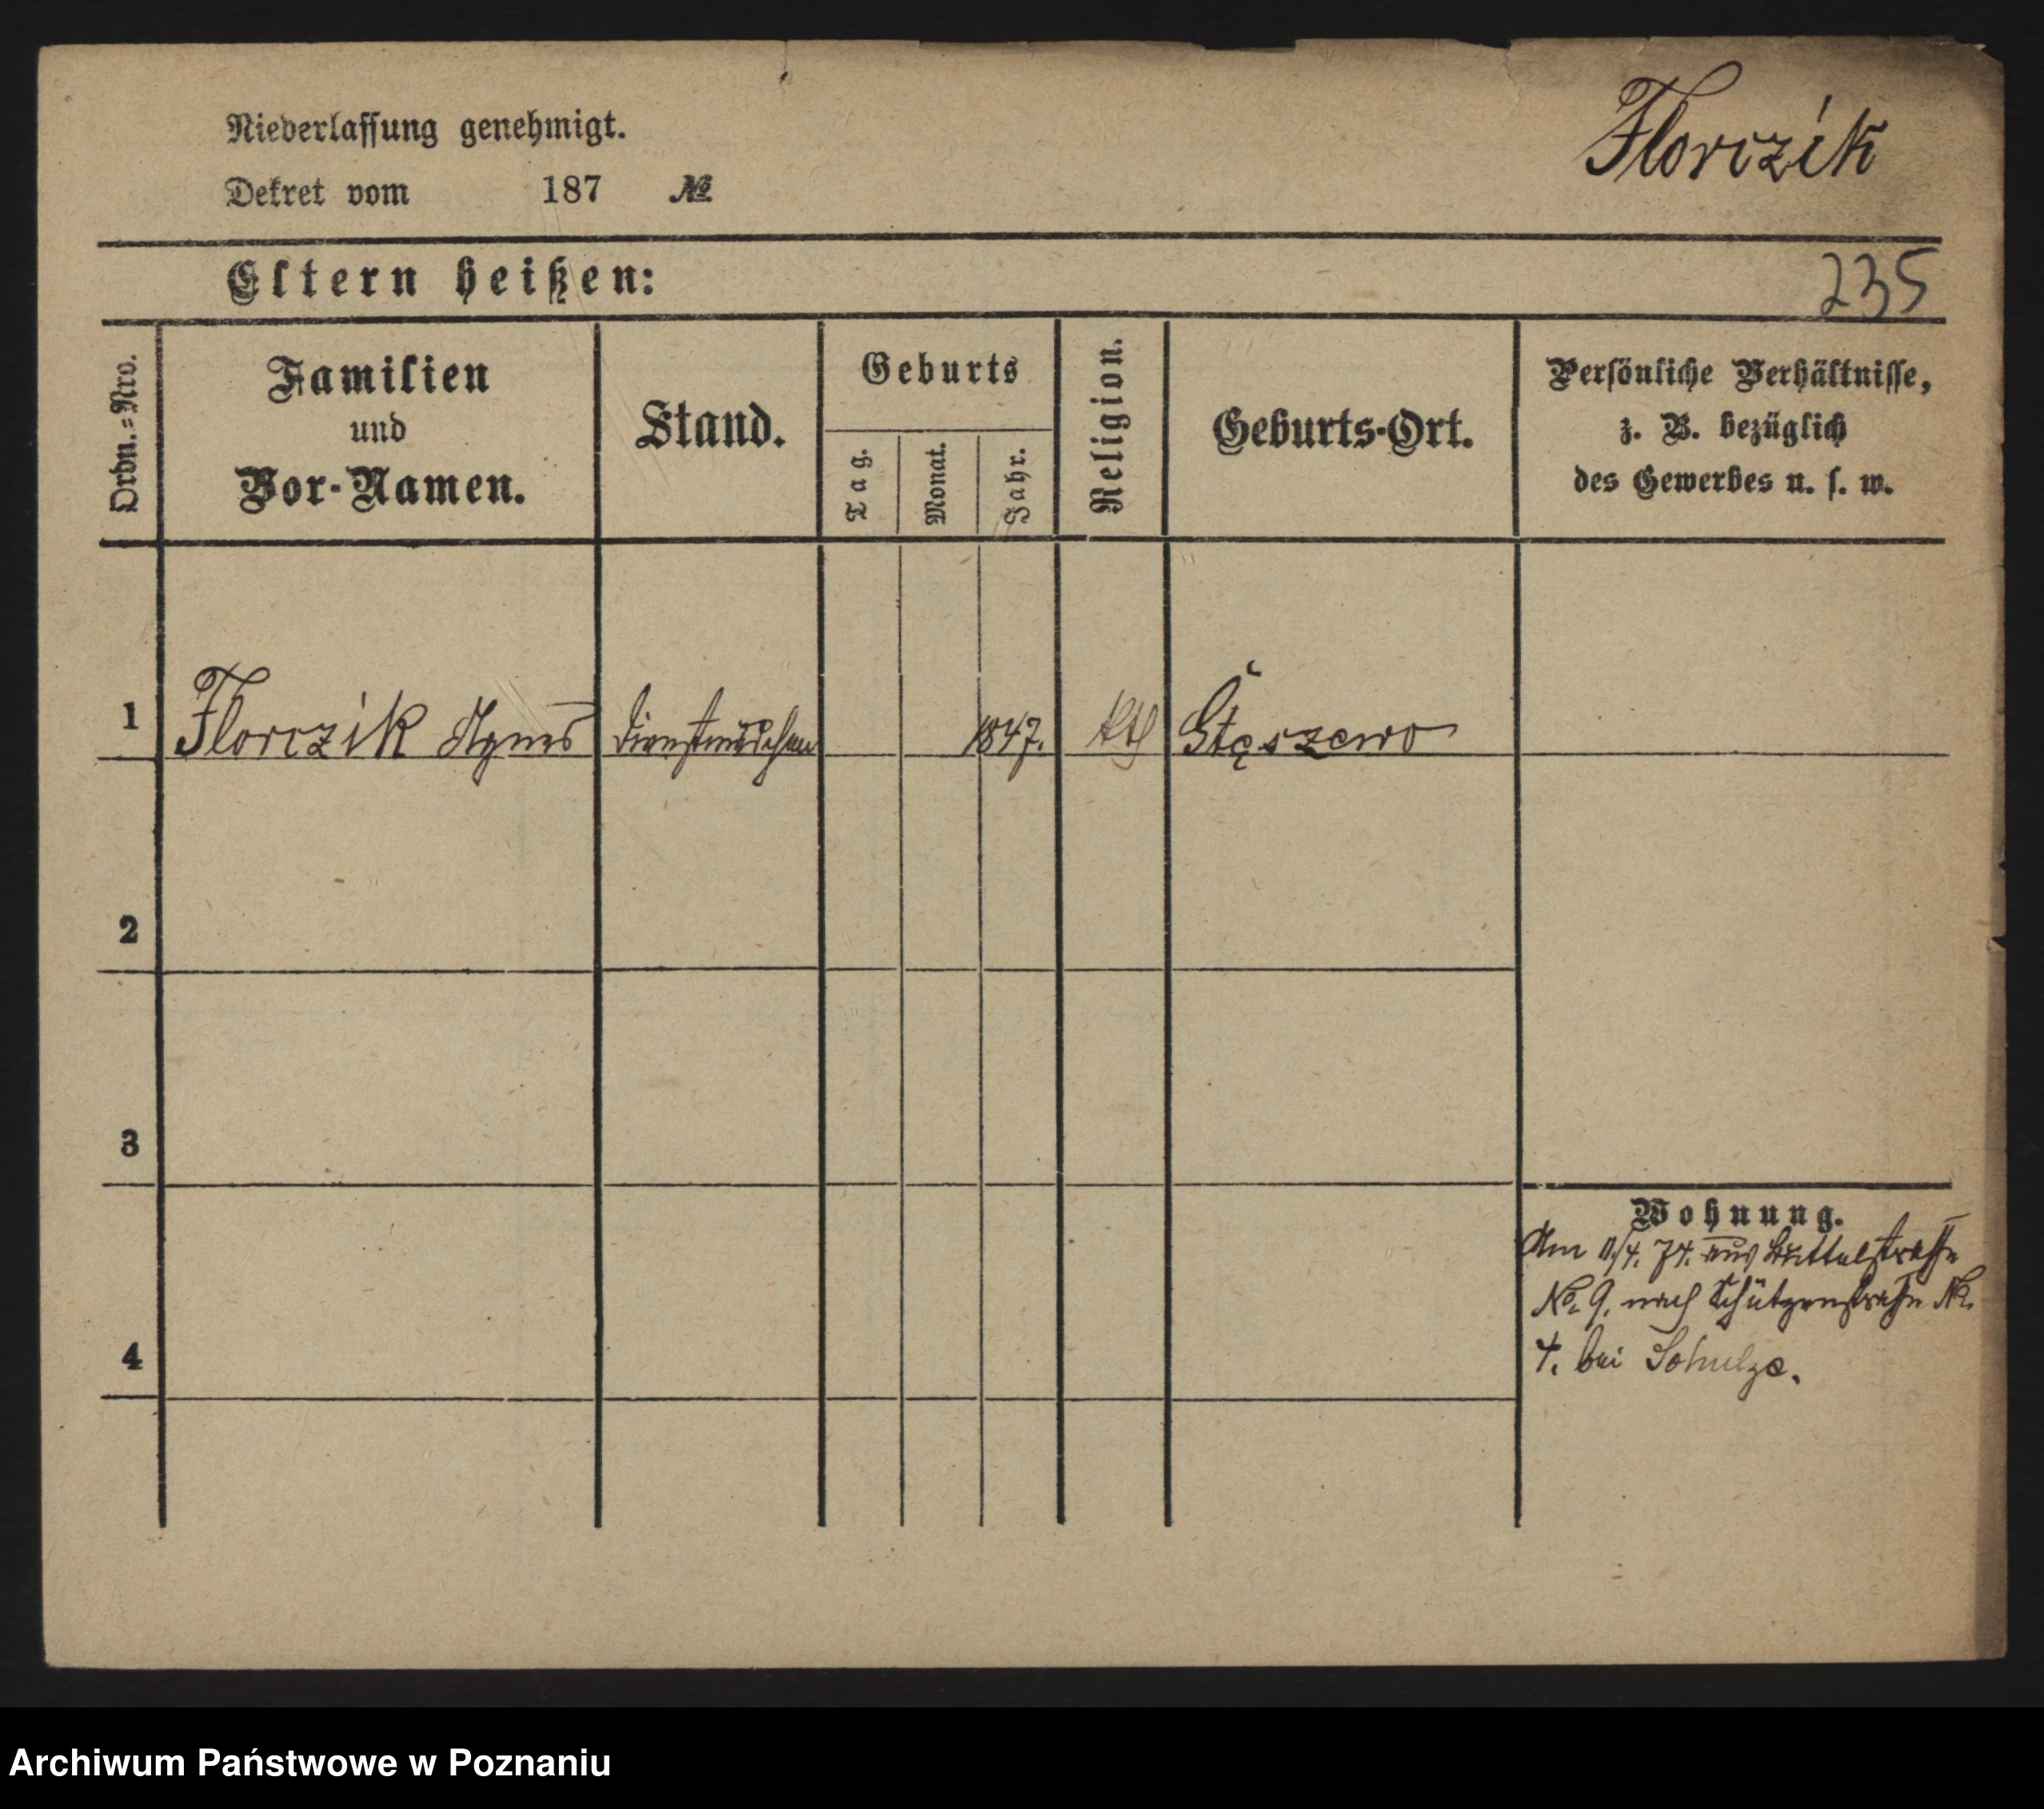 Niederlassung genehmigt.
Dekret vom 187 №
Florczik
Eltern heißen:
235
Ordn.=Nro.
Familien
und
Vor-Namen.
Stand.
Geburts
Tag.
Monat.
Jahr.
Religion.
Geburts-Ort.
Persönliche Verhältnisse,
z. B. bezüglich
des Gewerbes u. s. w.
1 Florczik Agnes Dienstmädchen 1847. kth Stęszewo
2
3
Wohnung.
Am 11/4. 74. aus Büttelstraße
No. 9. nach Schützenstraße No.
4. bei Schulze.
4
Archiwum Państwowe w Poznaniu